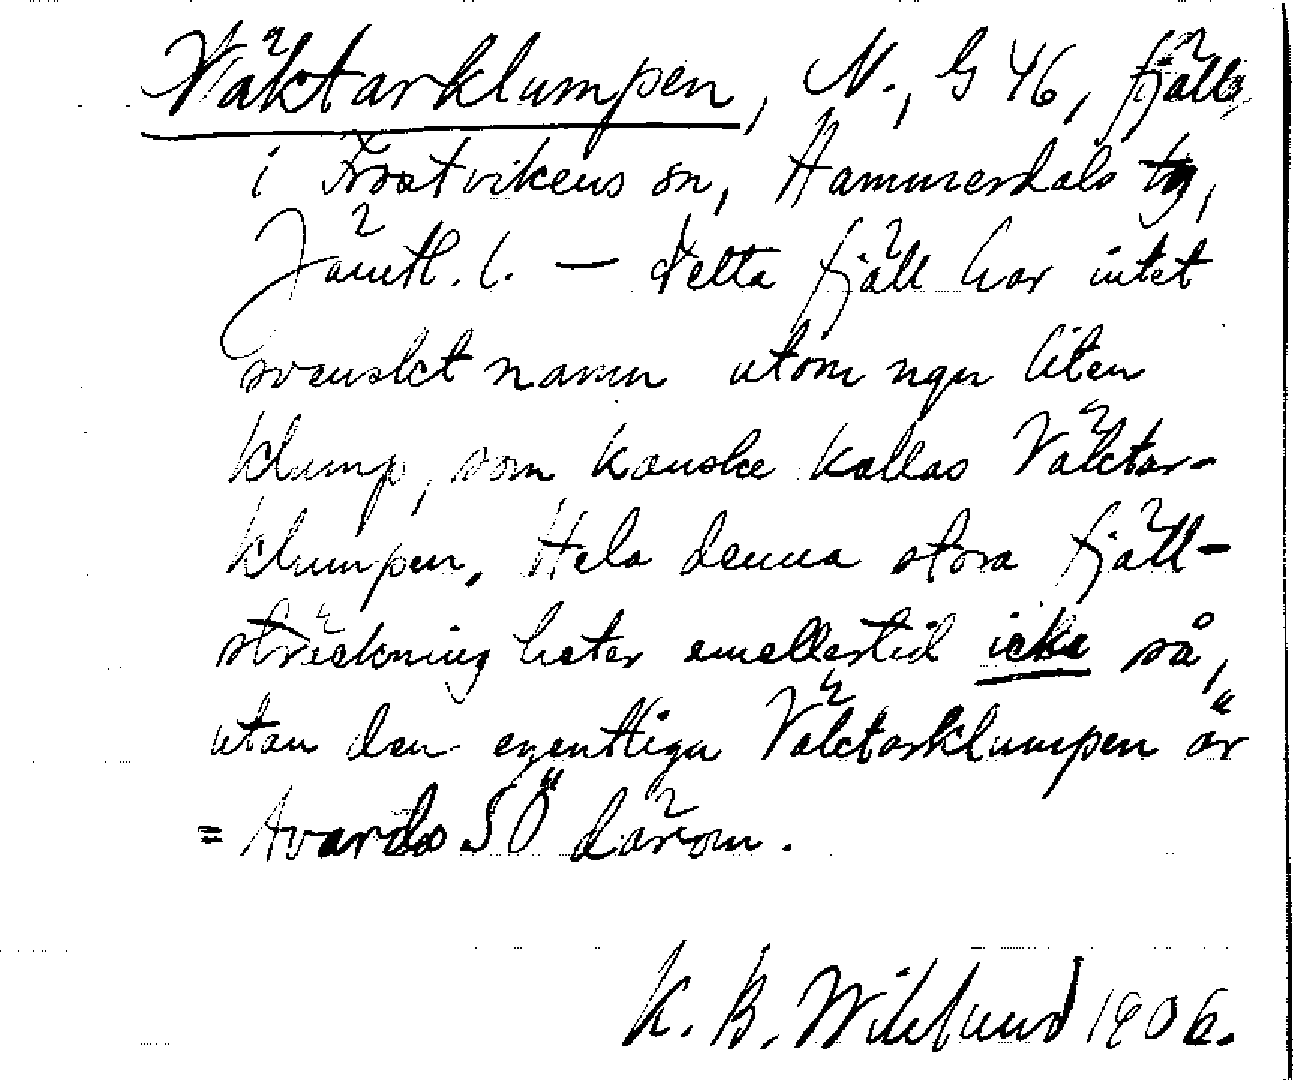 Väktarklumpen, N., G 46, fjäll,
i Frostvikens sn, Hammerdals tg,
Jämtl. l. — Detta fjäll har intet
svenskt namn utom ngn liten
klump, som kanske kallas Väktar-
klumpen. Hela denna stora fjäll-
sträckning heter emellertid icke så,
utan den egentliga Väktarklumpen är
= Avardo SÖ därom.
K. B. Wiklund 1906.